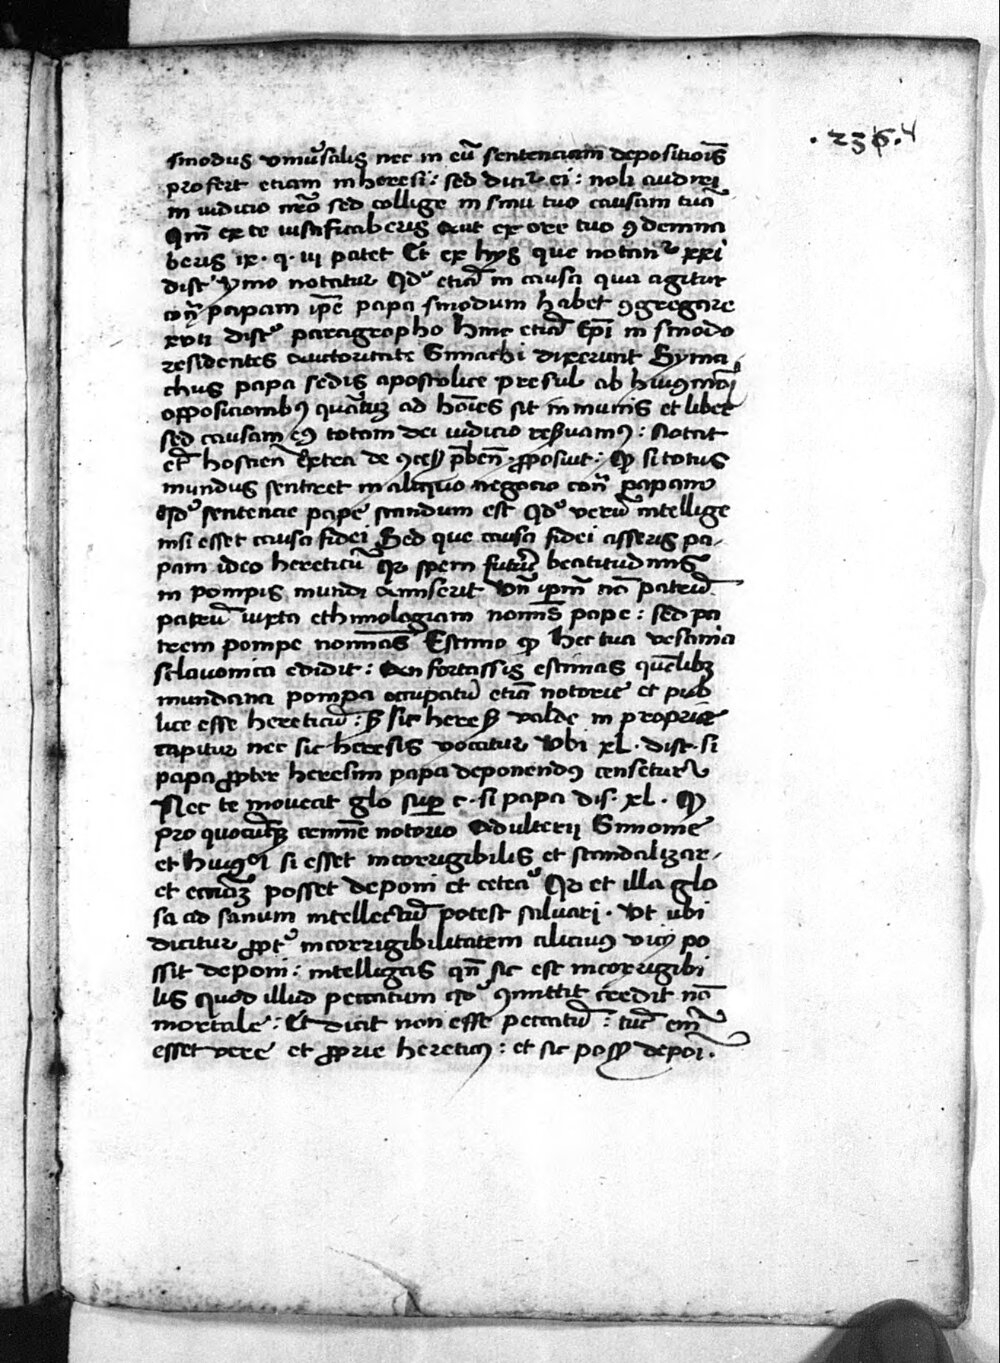 .236.4
sinodus vniu͛salis nec in eū sentenciam depositiōis
profert etiam in heresi : sed dicit͛ ei : noli audiri
in iudicio nr̄o sed collige in sinu tuo causam tuā
Qm̄ ex te iustificaberis Aut ex ore tuo ꝯdemna
beris ix · q · iij patet Et ex hijs que notant͛ xxi
dist͛ ymo notatur Qd͛ etiā in causa qua agitur
cont͛ papam ip̄e papa sinodum habet ꝯgregare
xvii dist͛ paragropho hinc etiā Ep̄i in sinodo
residentes auctoritate Simachi dixerunt Syma
chus papa sedis apostolice presul ab huiꝯmōi
opposicionibꝯ quātuȝ ad hoīes sit inmunis et liber
sed causam eiꝯ totam dei iudicio reẜuamꝯ : Notat
et͛ hostien̄ Extra de ꝯceſſ p̄ben̄ · ꝓposuit : Qꝫ si totus
mundus sentiret in aliquo negocio cont͛ papam
qd͛ sentencie pape standum est Qd͛ verū intellige
nisi esset causa fidei Sed que causa fidei asseris pa-
pam ideo hereticū Qꝛ spem future beatitudinis
in pompis mundi amiserit Vn̄ ip̄m nō patrē
patrū iuxta ethimologiam nomīs pape : sed pa
trem pompe nomīas Estimo qꝫ hec tua vesania
sclauonica edidit : An fortassis estimas quēlibȝ
mundana pompa occupatū etiā notorie et pub
lice esse hereticū : ẜ sic hereẜ valde in proprie
capitur nec sic heresis vocatur Vbi xl · dist · si
papa ꝓpter heresim papa deponendꝯ censetur
Nec te moueat glo sup̄ c · si papa dis · xl · Qꝫ
pro quocūqꝫ crimīe notorio Adulterii Simonie
et huiꝯōi si esset incorrigibilis et scandalizar-
et ecciāȝ posset deponi et cetea͛ Qꝛ et illa glo
sa ad sanum intellectū potest saluari · Vt ubi
dicitur ꝓpt͛ incorrigibilitatem alicuiꝯ vicij po
ssit deponi : intelligas qn̄ sic est incorrigibi
lis quod illud peccatum qd͛ ꝯmittit credit nō
mortale : Et dicit non esse peccatū : tūc em̄
esset vere et ꝓprie hereticꝯ : et sic posſꝫ depoī ·